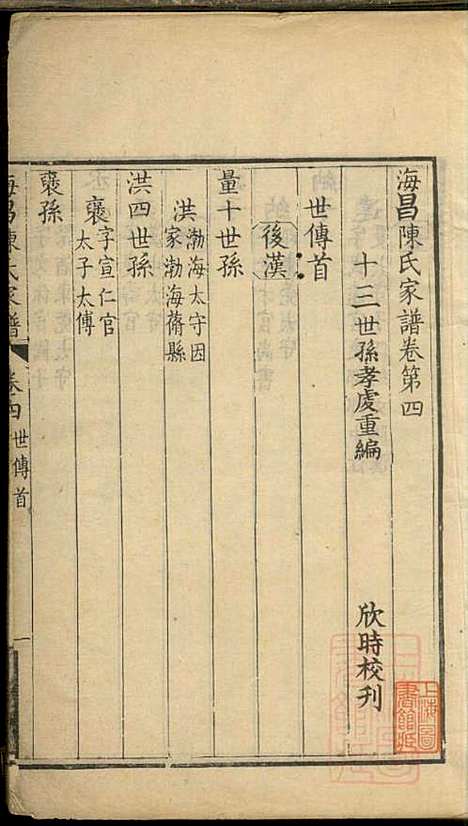 海昌陳氏家譜卷第四
十三世孫孝處重編
欣時校刊
世傳首
後漢
量十世孫
洪 渤海太守因
家渤海蓨縣
洪四世孫
襃 字宣仁官
太子太傅
襃孫
海昌陳氏家譜 卷四 世傳首 一
上海圖書館藏